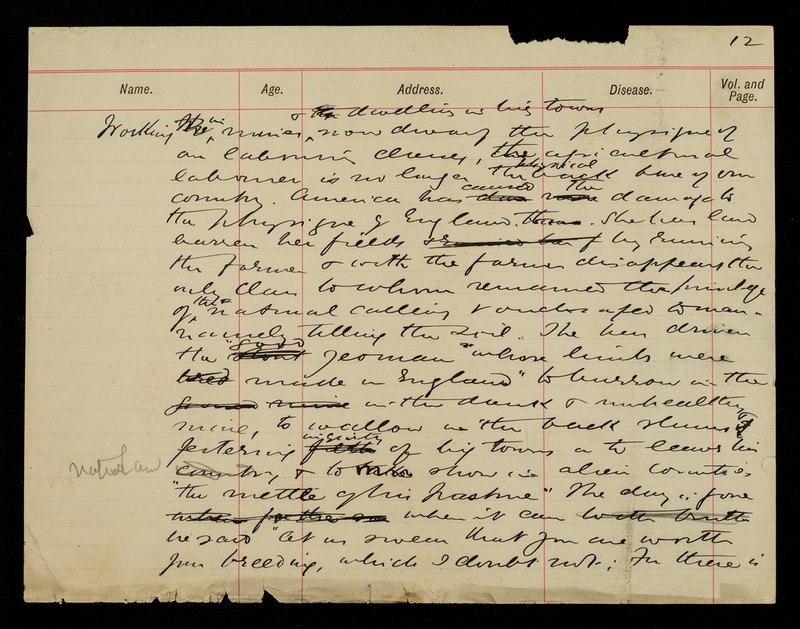 12
Name. Age. Address. Disease. Vol. and Page.
& dwelling in big towns
Working in mines, now dwarf the physique of
our labouring classes, the agricultural
labourer is no longer the physical back bone of our
country. America has caused the damage to
the physique of England. She has laid
barren her fields by ruining
the farmer & with the farmer disappears the
only class to whom remained the privilege
of that natural calling vouchsafed to man -
namely tilling the soil. She has driven
the "good yeoman" "whose limbs were
made in England" to burrow in the
in the dank & unhealthy
mine, to wallow in the back slums &
festering of big towns or to leave his
country, & to show in alien countries
native land
"the mettle of his pasture" The day is gone
when it can
be said "let us swear that you are worth
your breeding, which I doubt not; For there is